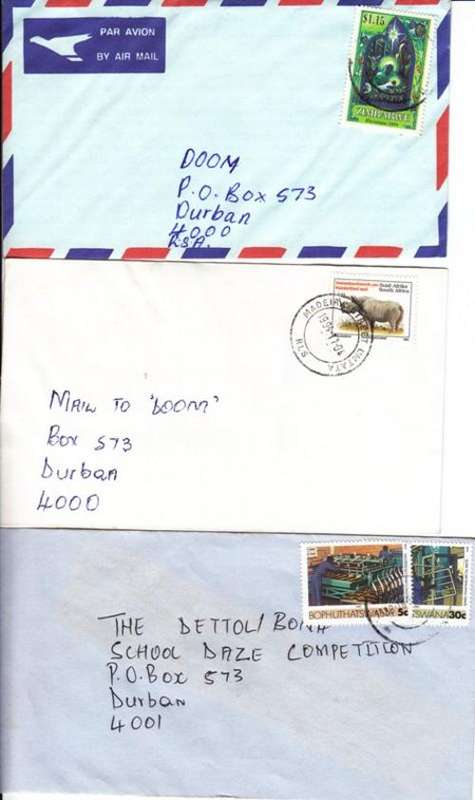 PAR AVION
BY AIR MAIL
$1.15
ZIMBABWE
DOOM
P.O. Box 573
Durban
4000
RSA.
Suid-Afrika
South Africa
MADEIRA STREET UMTATA
MAIL TO 'DOOM'
Box 573
Durban
4000
BOPHUTHATSWANA 5c
TSWANA 30c
THE DETTOL/BONA
SCHOOL DAZE COMPETITION
P.O. Box 573
Durban
4001